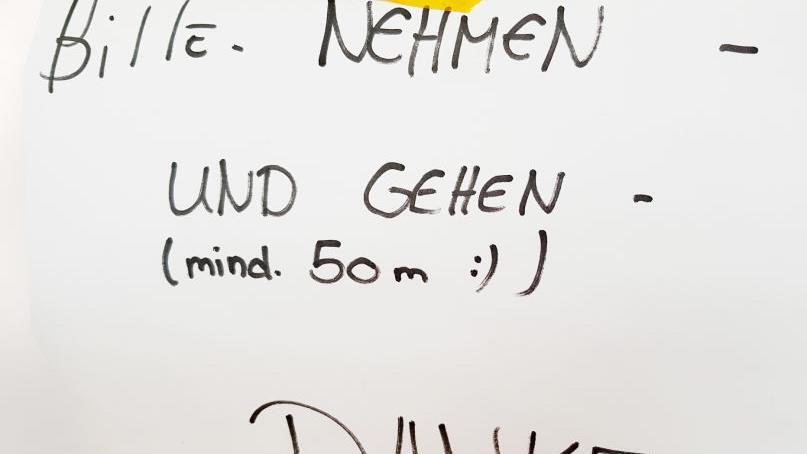 Bitte. NEHMEN -
UND GEHEN -
(mind. 50 m :) )
DANKE